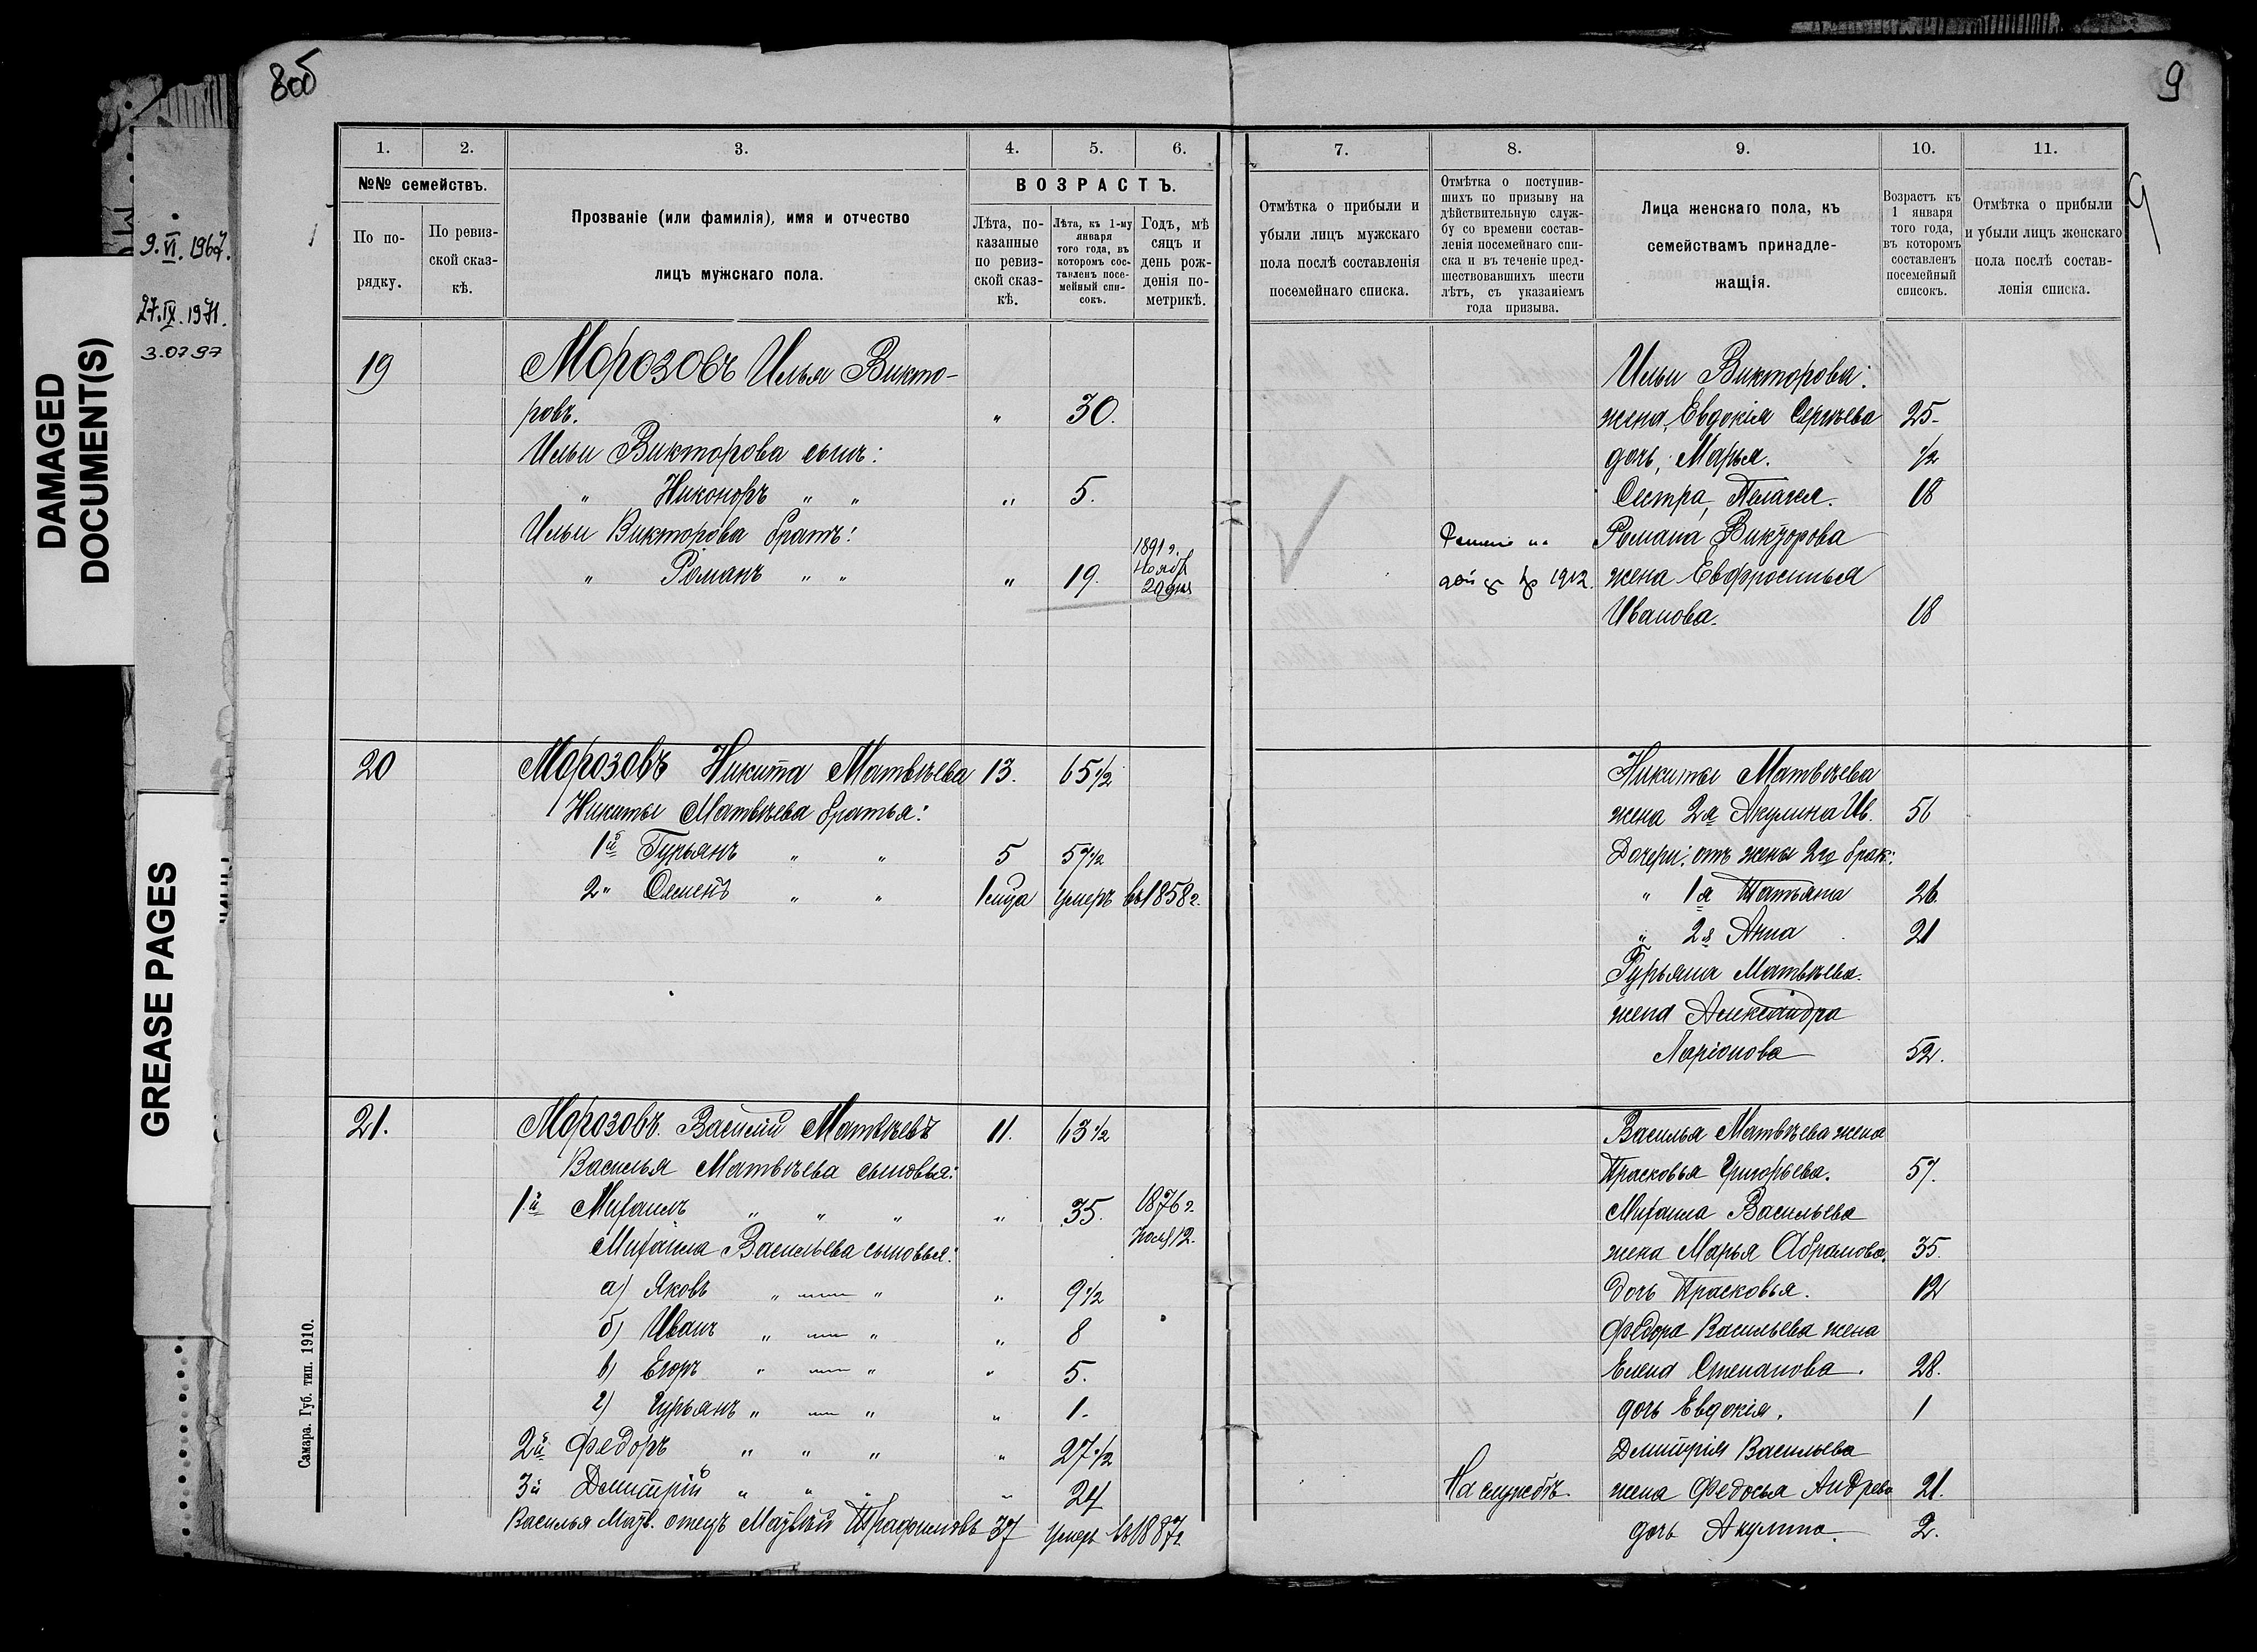 8об
9
9
9.VI.1967.
27.IX.1971.
3.07.97
DAMAGED
DOCUMENT(S)
GREASE PAGES
Самара. Губ. тип. 1910.
1. 2. 3. 4. 5. 6.
№№ семействъ.
По по-
рядку.
По ревиз-
ской сказ-
кѣ.
Прозваніе (или фамилія), имя и отчество
лицъ мужскаго пола.
ВОЗРАСТЪ.
Лѣта, по-
казанные
по ревиз-
ской сказ-
кѣ.
Лѣта, къ 1-му
января
того года, въ
которомъ сос-
тавленъ посе-
мейный спи-
сокъ.
Годъ, мѣ
сяцъ и
день рож-
денія по-
метрикѣ.
19 Морозовъ Илья Викто-
ровъ. " 30.
Ильи Викторова сынъ:
" Никоноръ " " " 5.
Ильи Викторова братъ:
" Романъ " " " 19. 1891 г.
Нояб
20 дня
20 Морозовъ Никита Матвѣева 13. 65 1/2
Никиты Матвѣева братья:
1й Гурьянъ " " 5 57 1/2
2" Семенъ " " 1 мца Умеръ въ 1858 г.
21. Морозовъ Василій Матвѣевъ 11. 63 1/2
Василья Матвѣева сыновья:
1й Михаилъ " " " " 35. 1876 г.
Нояб 12.
Михаила Васильева сыновья:
а) Яковъ " — " " 9 1/2
б) Иванъ " — " " 8
в) Егоръ " — " " 5.
г) Гурьянъ " — " " 1.
2й Федоръ " " " " 27 1/2
3й Дмитрій " " " " 24
Василья Матв. отецъ Матвѣй Трафимовъ 37 Умеръ въ 1887 г.
7. 8. 9. 10. 11.
Отмѣтка о прибыли и
убыли лицъ мужскаго
пола послѣ составленія
посемейнаго списка.
Отмѣтка о поступив-
шихъ по призыву на
дѣйствительную служ-
бу со времени состав-
ленія посемейнаго спи-
ска и въ теченіе пред-
шествовавшихъ шести
лѣтъ, съ указаніемъ
года призыва.
Лица женскаго пола, къ
семействамъ принадле-
жащія.
Возрастъ къ
1 января
того года,
въ которомъ
составленъ
посемейный
списокъ.
Отмѣтка о прибыли
и убыли лицъ женскаго
пола послѣ состав-
ленія списка.
Ильи Викторова:
жена, Евдокія Сергѣева 25.
дочь, Марья. 1/2
Сестра, Пелагея. 18
Романа Викторова
1912. жена Евфросинья
Иванова. 18
Никиты Матвѣева
жена 2я Акулина Ив. 56
Дочери: отъ жены 2го брак:
" 1я Татьяна 26.
" 2я Анна 21
Гурьяна Матвѣева.
жена Александра
Ларіонова 52.
Василья Матвѣева жена
Прасковья Григорьева. 57.
Михаила Васильева
жена Марья Абрамова. 35.
Дочь Прасковья. 12
Федора Васильева жена
Елена Степанова. 28.
дочь Евдокія. 1
Дмитрія Васильева
На службѣ. жена Федосья Андрева 21.
дочь Акулина. 2.